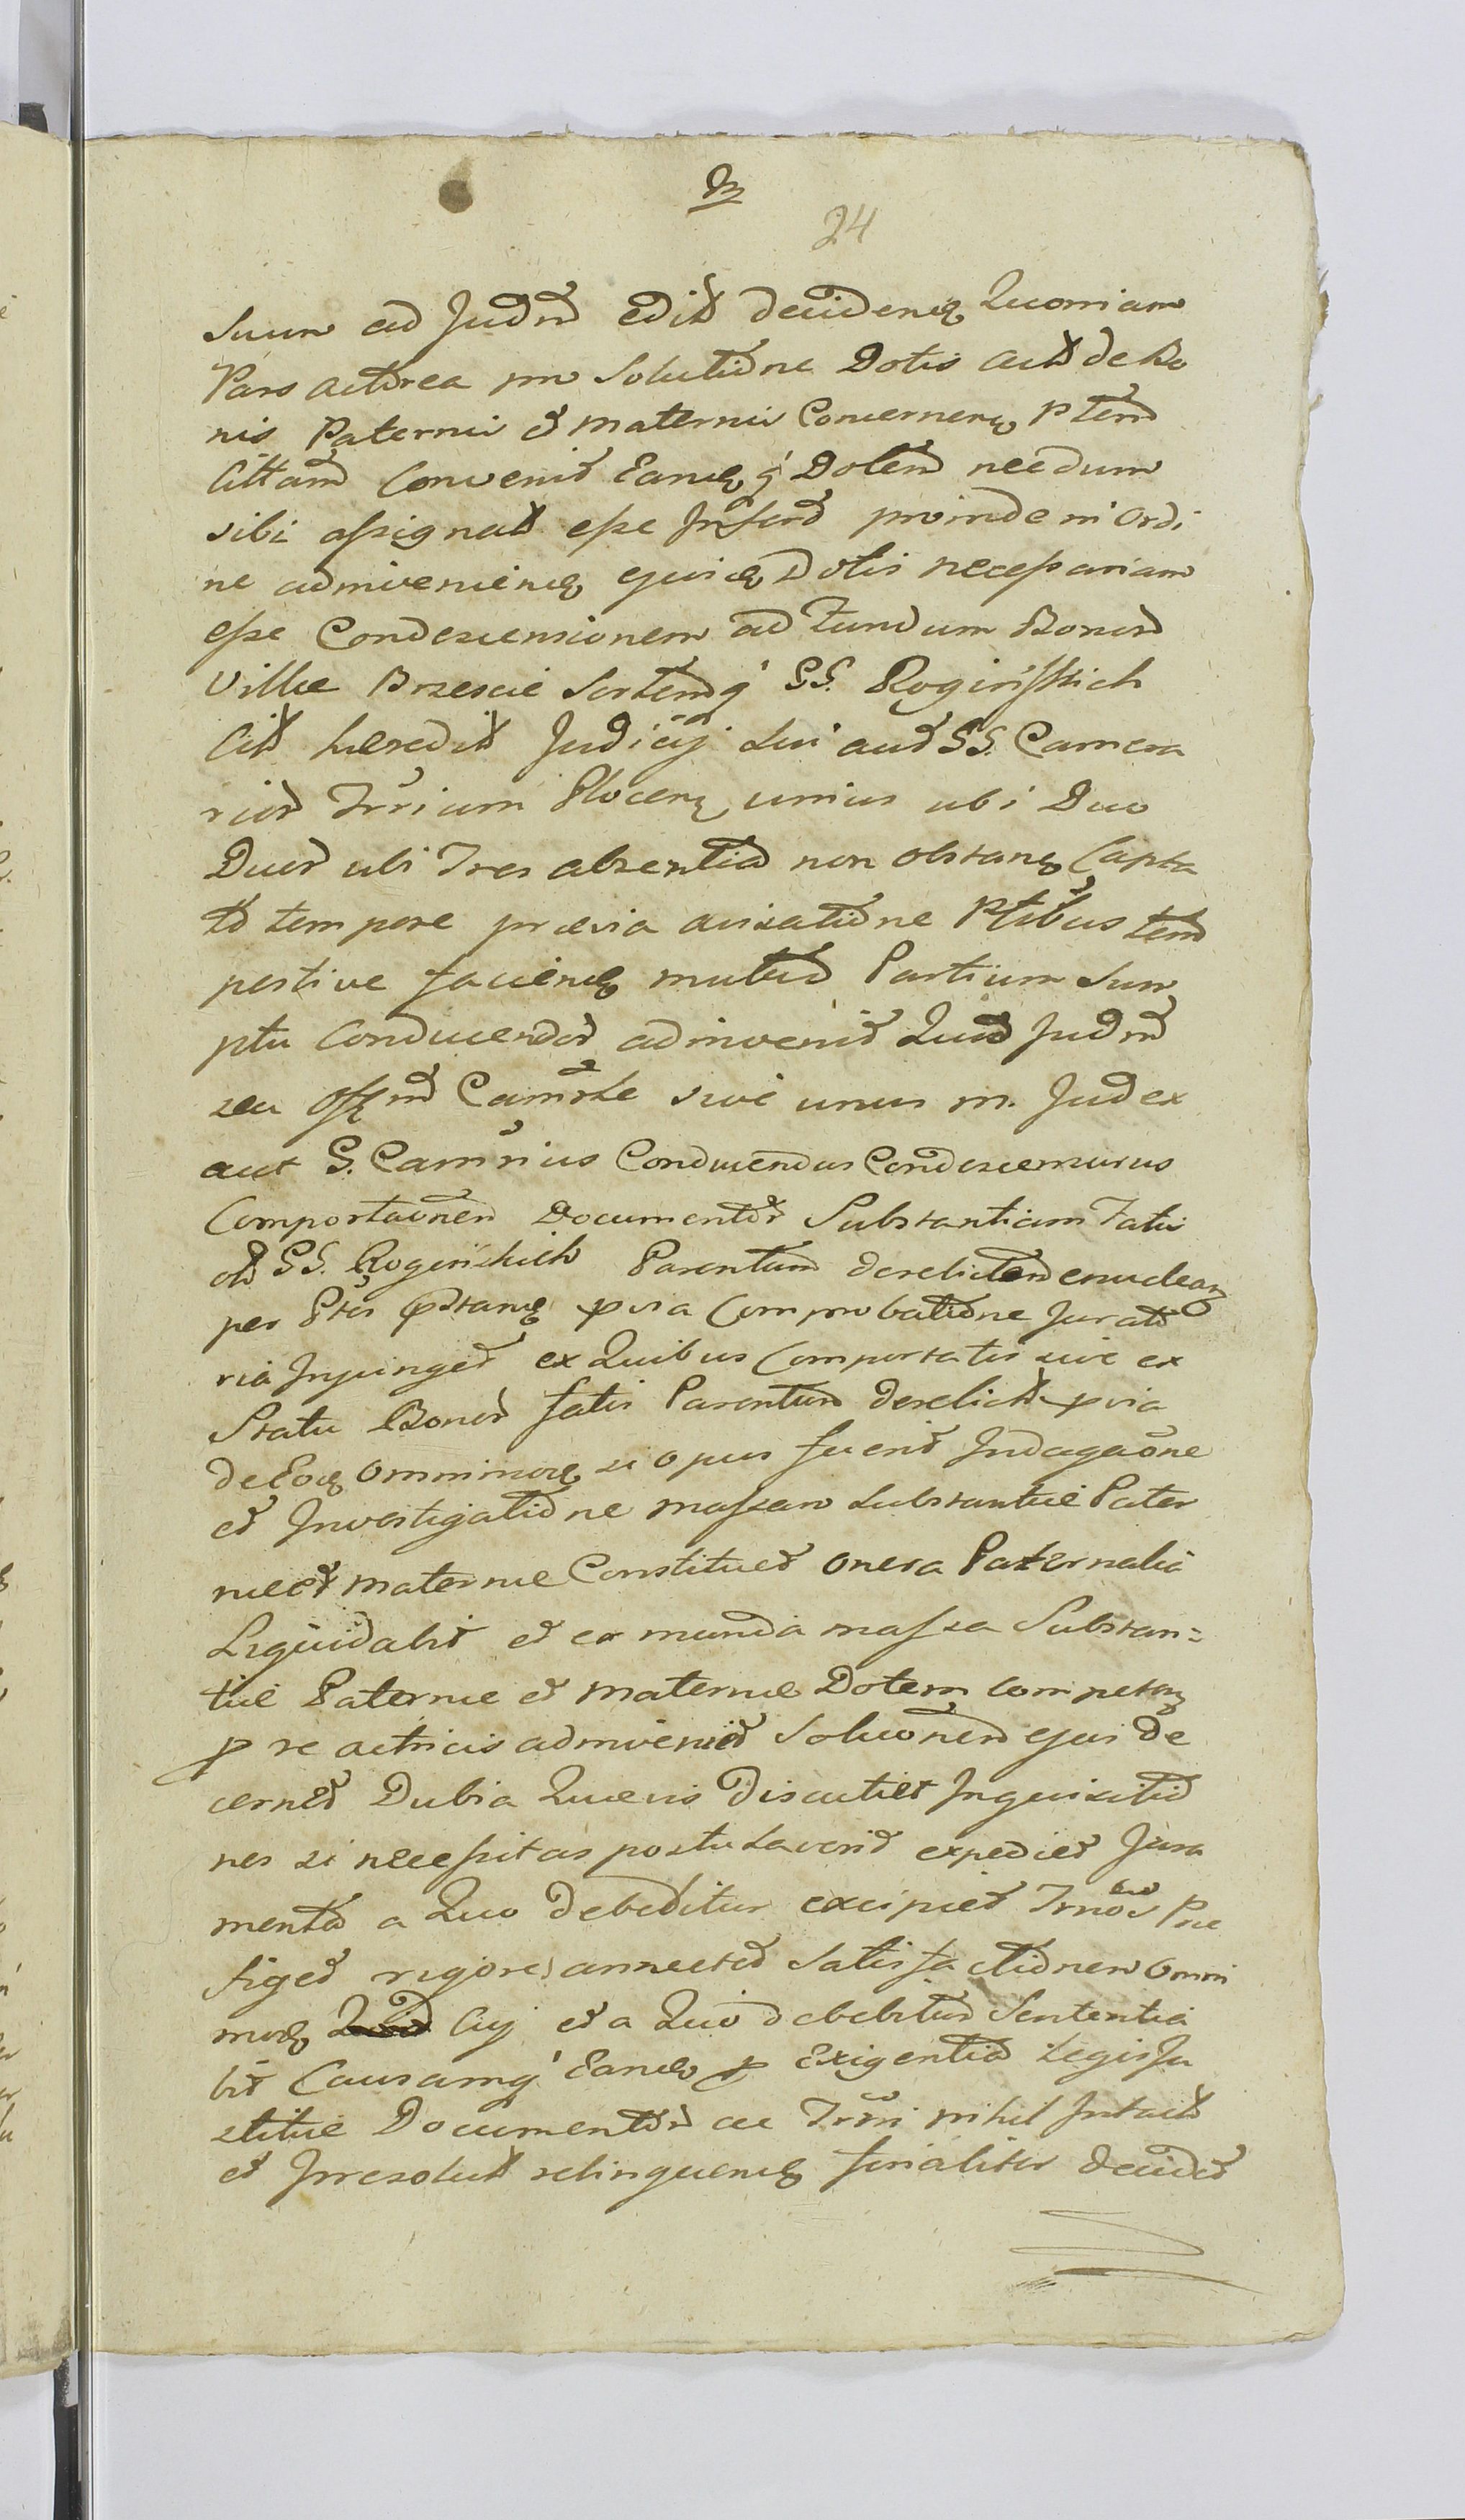 B
24
Suum ad Judm edit decidens Quoniam
Pars actorea pro Solutione Dotis act de Bo
nis Paternis et Maternis Concernen ptem
Cittam Convenit Eamq Dotem necdum
sibi assignat esse Infert proinde in Ordi
ne adinveniens ejus Dotis necessariam
esse Condescensionem ad Fundum Bonor
Villae Brzescie Sortemq GG. Rogińskich
Cit haeredit Judicij Sui aut GG. Camera
rior Trrium Plocen unius ubi Duo
Duor ubi Tres absentia non obstan Capta
to tempore praevia avisatione Ptibus tem
pestive faciens mutuo Partium Sum
ptu Conducendor adinvenit Quod Judm
seu Offm Camrle sive unus m. Judex
aut G. Camrius Conducendus Condescensurus
Comportaonem Documentor Substantiam Fatis
ol GG. Rogińskich Parentum derelictam enuclean
per Ptes pstan pvia Comprobatione Jurato
ria Injunget ex Quibus Comportatis sive ex
Statu Bonor fatis Parentum derelict pvia
de Eos omnimos si opus fuerit Indagaone
et Investigatione massam Substantiae Pater
nae et maternae Constituet onera Paternalia
Liquidabit et ex munda massa Substan=
tiae Paternae et Maternae Dotem Competen
p re actricis adinveniet Soluonem ejus de
cernet Dubia Quaevis Discutiet Inquisitio
nes si necessitas postulaverit expediet Jura
menta a Quo Debebitur excipiet Trnos Prae
figet rigores annectet Satisfactionem Omni
mod Cuj et a Quo debebitur Sententia
bit Causamq Eand p Exigentia Legis Ju
stitiae Documentor ac Trmi nihil Intact
et Irresolut relinquens finaliter decidet